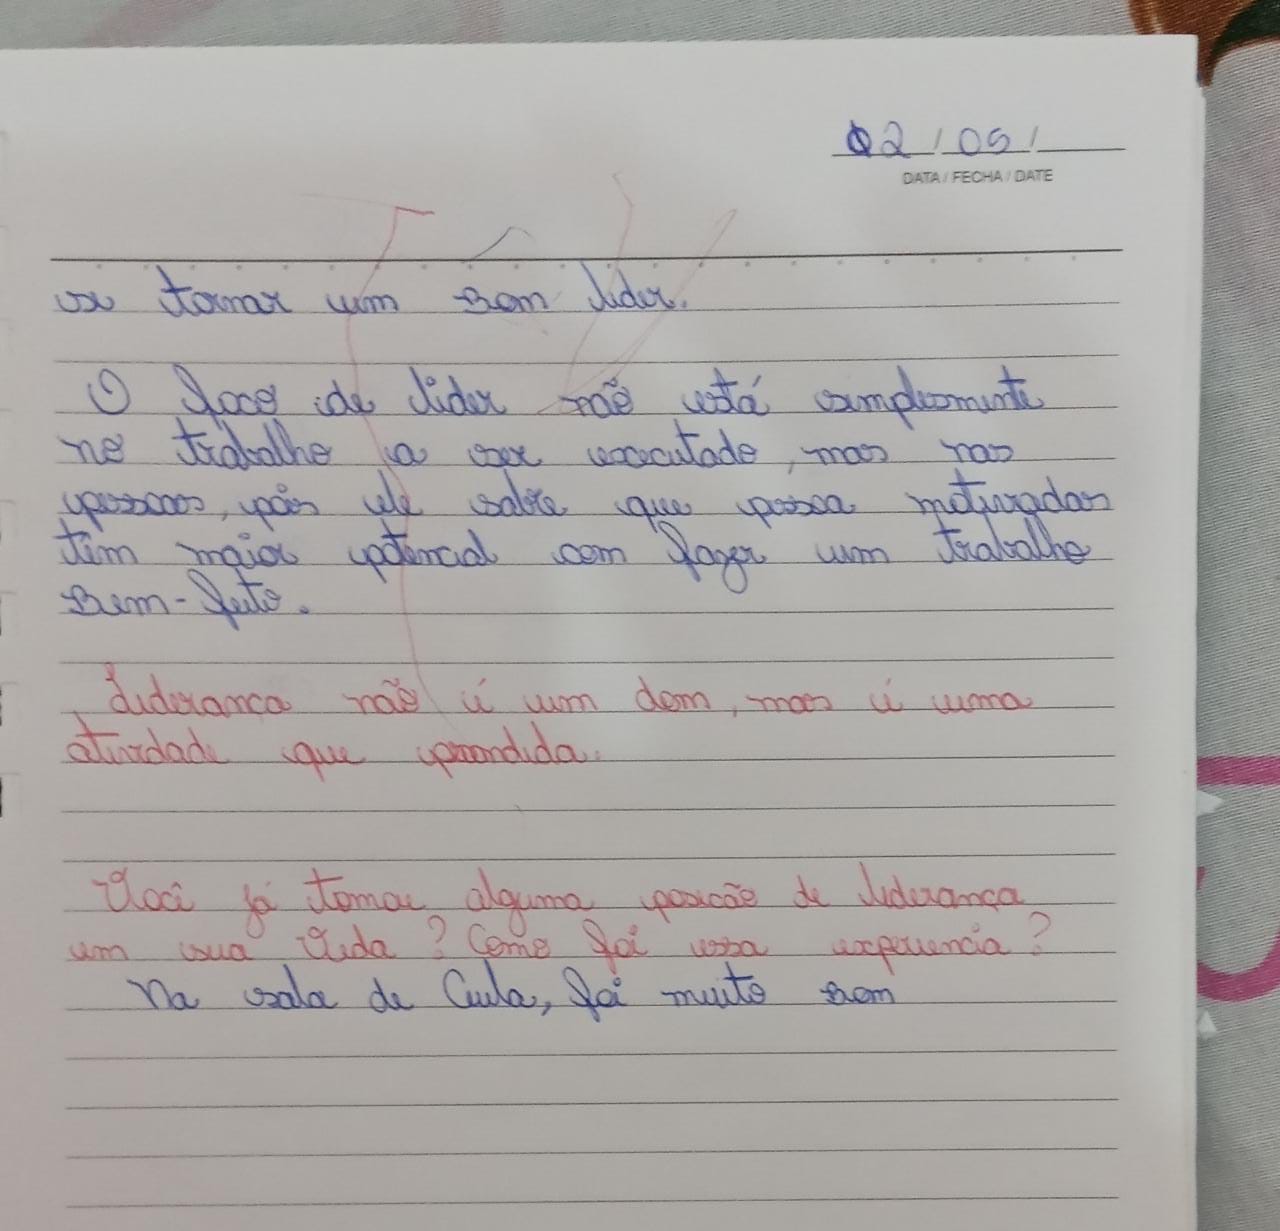 02/05/
DATA / FECHA / DATE
se tornar um bom lider.
O foco de lider não está simplesmente
no trabalho a ser executado, mas nas
pessoas, pois ele sabe que possoa motivadas
tem maior potencial com fazer um trabalho
bem-feito.
Liderança não é um dom, mas é uma
atividade que aprendida.
Você já tomou alguma posicão de liderança
em sua vida? Como foi essa experiencia?
Na sala de Caula, foi muito bom